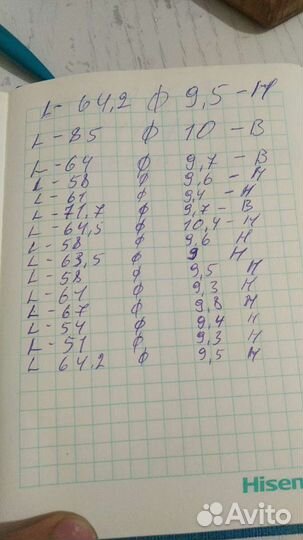 L - 64,2 ф 9,5 - Н
L - 85 ф 10 - В
L - 64 ф 9,7 - В
L - 58 ф 9,6 - Н
L - 61 ф 9,4 - Н
L - 71,7 ф 9,7 - В
L - 64,5 ф 10,4 - Н
L - 58 ф 9,6 Н
L - 63,5 ф 9 Н
L - 58 ф 9,5 Н
L - 61 ф 9,3 Н
L - 67 ф 9,8 Н
L - 54 ф 9,4 Н
L - 51 ф 9,3 Н
L - 64,2 ф 9,5 Н
Hisen
Avito